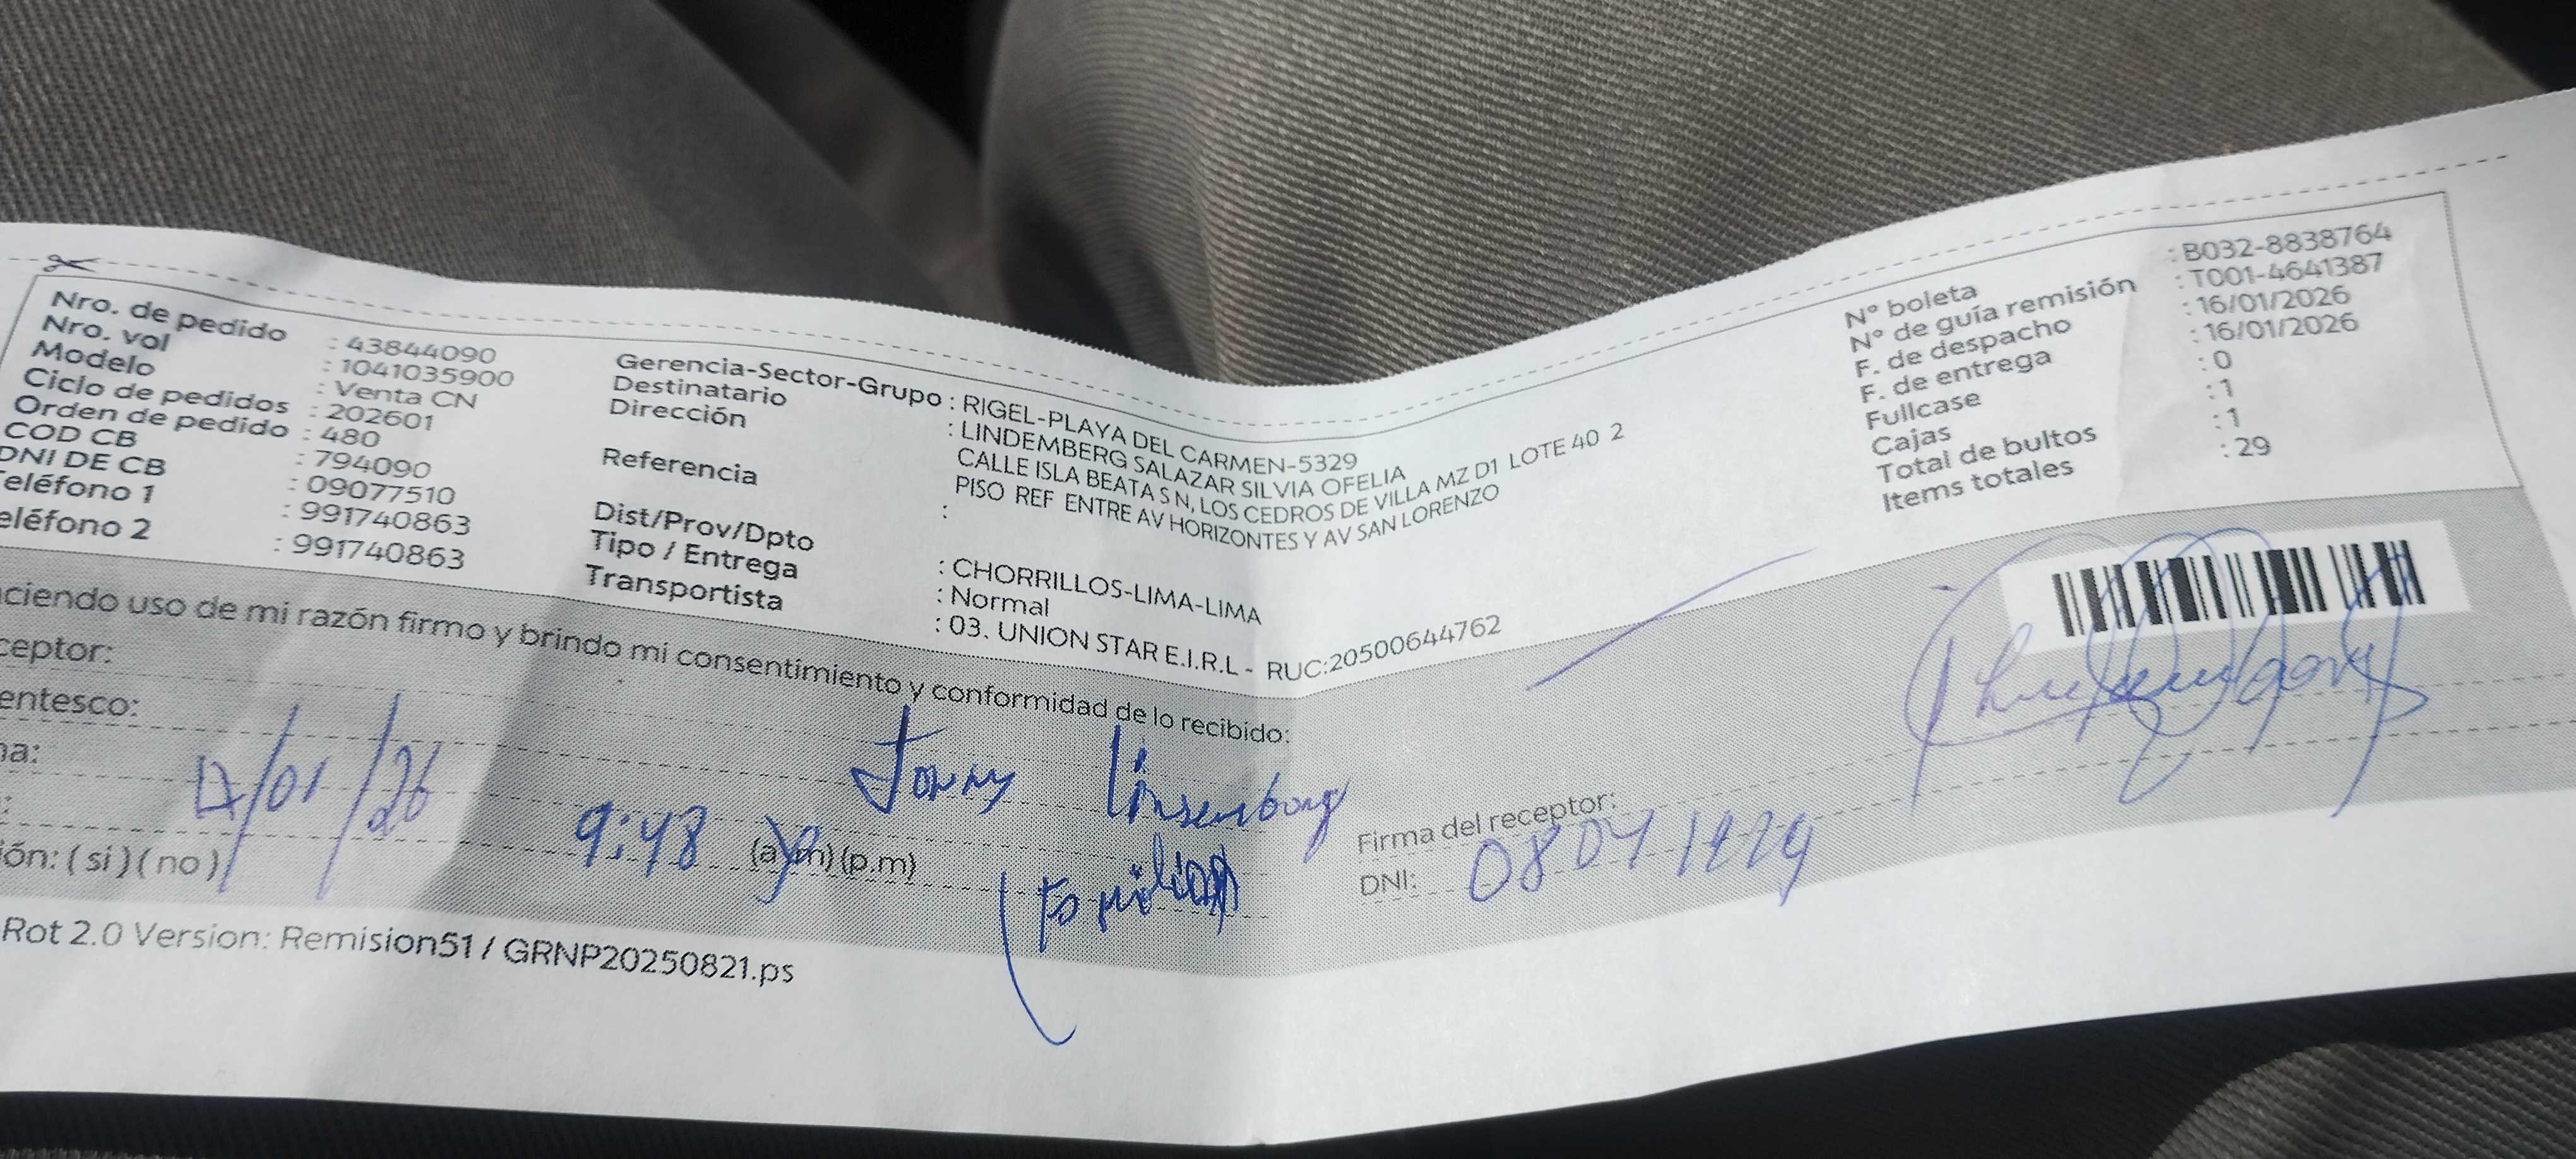 Nro. de pedido : 43844090
Nro. vol : 1041035900
Modelo : Venta CN
Ciclo de pedidos : 202601
Orden de pedido : 480
COD CB : 794090
DNI DE CB : 09077510
eléfono 1 : 991740863
eléfono 2 : 991740863
Gerencia-Sector-Grupo : RIGEL-PLAYA DEL CARMEN-5329
Destinatario : LINDEMBERG SALAZAR SILVIA OFELIA
Dirección CALLE ISLA BEATA S N, LOS CEDROS DE VILLA MZ D1 LOTE 40 2
PISO REF ENTRE AV HORIZONTES Y AV SAN LORENZO
Referencia :
Dist/Prov/Dpto : CHORRILLOS-LIMA-LIMA
Tipo / Entrega : Normal
Transportista : 03. UNION STAR E.I.R.L - RUC:20500644762
N° boleta : B032-8838764
N° de guía remisión : T001-4641387
F. de despacho : 16/01/2026
F. de entrega : 16/01/2026
Fullcase : 0
Cajas : 1
Total de bultos : 1
Items totales : 29
ciendo uso de mi razón firmo y brindo mi consentimiento y conformidad de lo recibido:
ceptor: Jonny
entesco:
na: 17/01/26
: 9:48 (a.m) (p.m)
ión: ( si ) ( no )
Firma del receptor:
DNI:
Rot 2.0 Version: Remision51 / GRNP20250821.ps